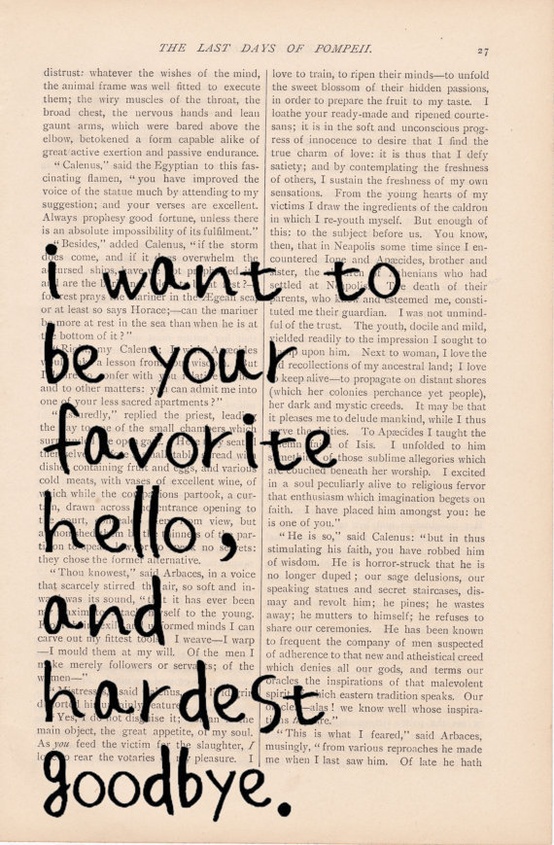 THE LAST DAYS OF POMPEII.
27
i want to
be your
favorite
hello,
and
hardest
goodbye.
distrust: whatever the wishes of the mind,
the animal frame was well fitted to execute
them; the wiry muscles of the throat, the
broad chest, the nervous hands and lean
gaunt arms, which were bared above the
elbow, betokened a form capable alike of
great active exertion and passive endurance.
“Calenus,” said the Egyptian to this fas-
cinating flamen, “you have improved the
voice of the statue much by attending to my
suggestion; and your verses are excellent.
Always prophesy good fortune, unless there
is an absolute impossibility of its fulfilment.”
“Besides,” added Calenus, “if the storm
does come, and if it does overwhelm the
or at least so says Horace;—can the mariner
be more at rest in the sea than when he is at
the bottom of it?”
and to other matters: you can admit me into
one of your less sacred apartments?”
replied the priest,
containing fruit and eggs, and various
cold meats, with vases of excellent wine, of
which while the companions partook, a cur-
tain, drawn across the entrance opening to
they chose the former alternative.
“Thou knowest,” said Arbaces, in a voice
that scarcely stirred the air, so soft and in-
ward was its sound, “that it has ever been
carve out my fittest tools. I weave—I warp
—I mould them at my will. Of the men I
make merely followers or servants; of the
women—”
main object, the great appetite, of my soul.
As you feed the victim for the slaughter, I
love to rear the votaries of my pleasure. I
love to train, to ripen their minds—to unfold
the sweet blossom of their hidden passions,
in order to prepare the fruit to my taste. I
loathe your ready-made and ripened courte-
sans; it is in the soft and unconscious prog-
ress of innocence to desire that I find the
true charm of love: it is thus that I defy
satiety; and by contemplating the freshness
of others, I sustain the freshness of my own
sensations. From the young hearts of my
victims I draw the ingredients of the caldron
in which I re-youth myself. But enough of
this: to the subject before us. You know,
then, that in Neapolis some time since I en-
countered Ione and Apæcides, brother and
sister, the Athenians who had
settled at Neapolis. The death of their
parents, who knew and esteemed me, consti-
tuted me their guardian. I was not unmind-
ful of the trust. The youth, docile and mild,
yielded readily to the impression I sought to
upon him. Next to woman, I love the
old recollections of my ancestral land; I love
to keep alive—to propagate on distant shores
(which her colonies perchance yet people),
her dark and mystic creeds. It may be that
it pleases me to delude mankind, while I thus
serve the deities. To Apæcides I taught the
of Isis. I unfolded to him
those sublime allegories which
are couched beneath her worship. I excited
in a soul peculiarly alive to religious fervor
that enthusiasm which imagination begets on
faith. I have placed him amongst you: he
is one of you.”
“He is so,” said Calenus: “but in thus
stimulating his faith, you have robbed him
of wisdom. He is horror-struck that he is
no longer duped; our sage delusions, our
speaking statues and secret staircases, dis-
may and revolt him; he pines; he wastes
away; he mutters to himself; he refuses to
share our ceremonies. He has been known
to frequent the company of men suspected
of adherence to that new and atheistical creed
which denies all our gods, and terms our
oracles the inspirations of that malevolent
spirit of which eastern tradition speaks. Our
oracles—alas! we know well whose inspira-
tions they are.”
“This is what I feared,” said Arbaces,
musingly, “from various reproaches he made
me when I last saw him. Of late he hath